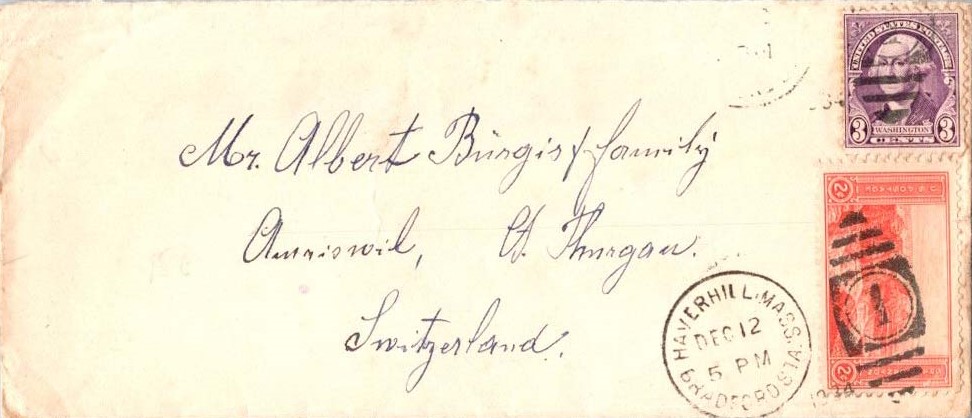 UNITED STATES POSTAGE
3 WASHINGTON 3
CENTS
Mr. Albert Bürgis & family
Amriswil, Ct. Thurgau.
Switzerland.
HAVERHILL, MASS.
DEC 12
5 PM
BRADFORD STA.
1934
2¢ U.S. POSTAGE
1
2¢